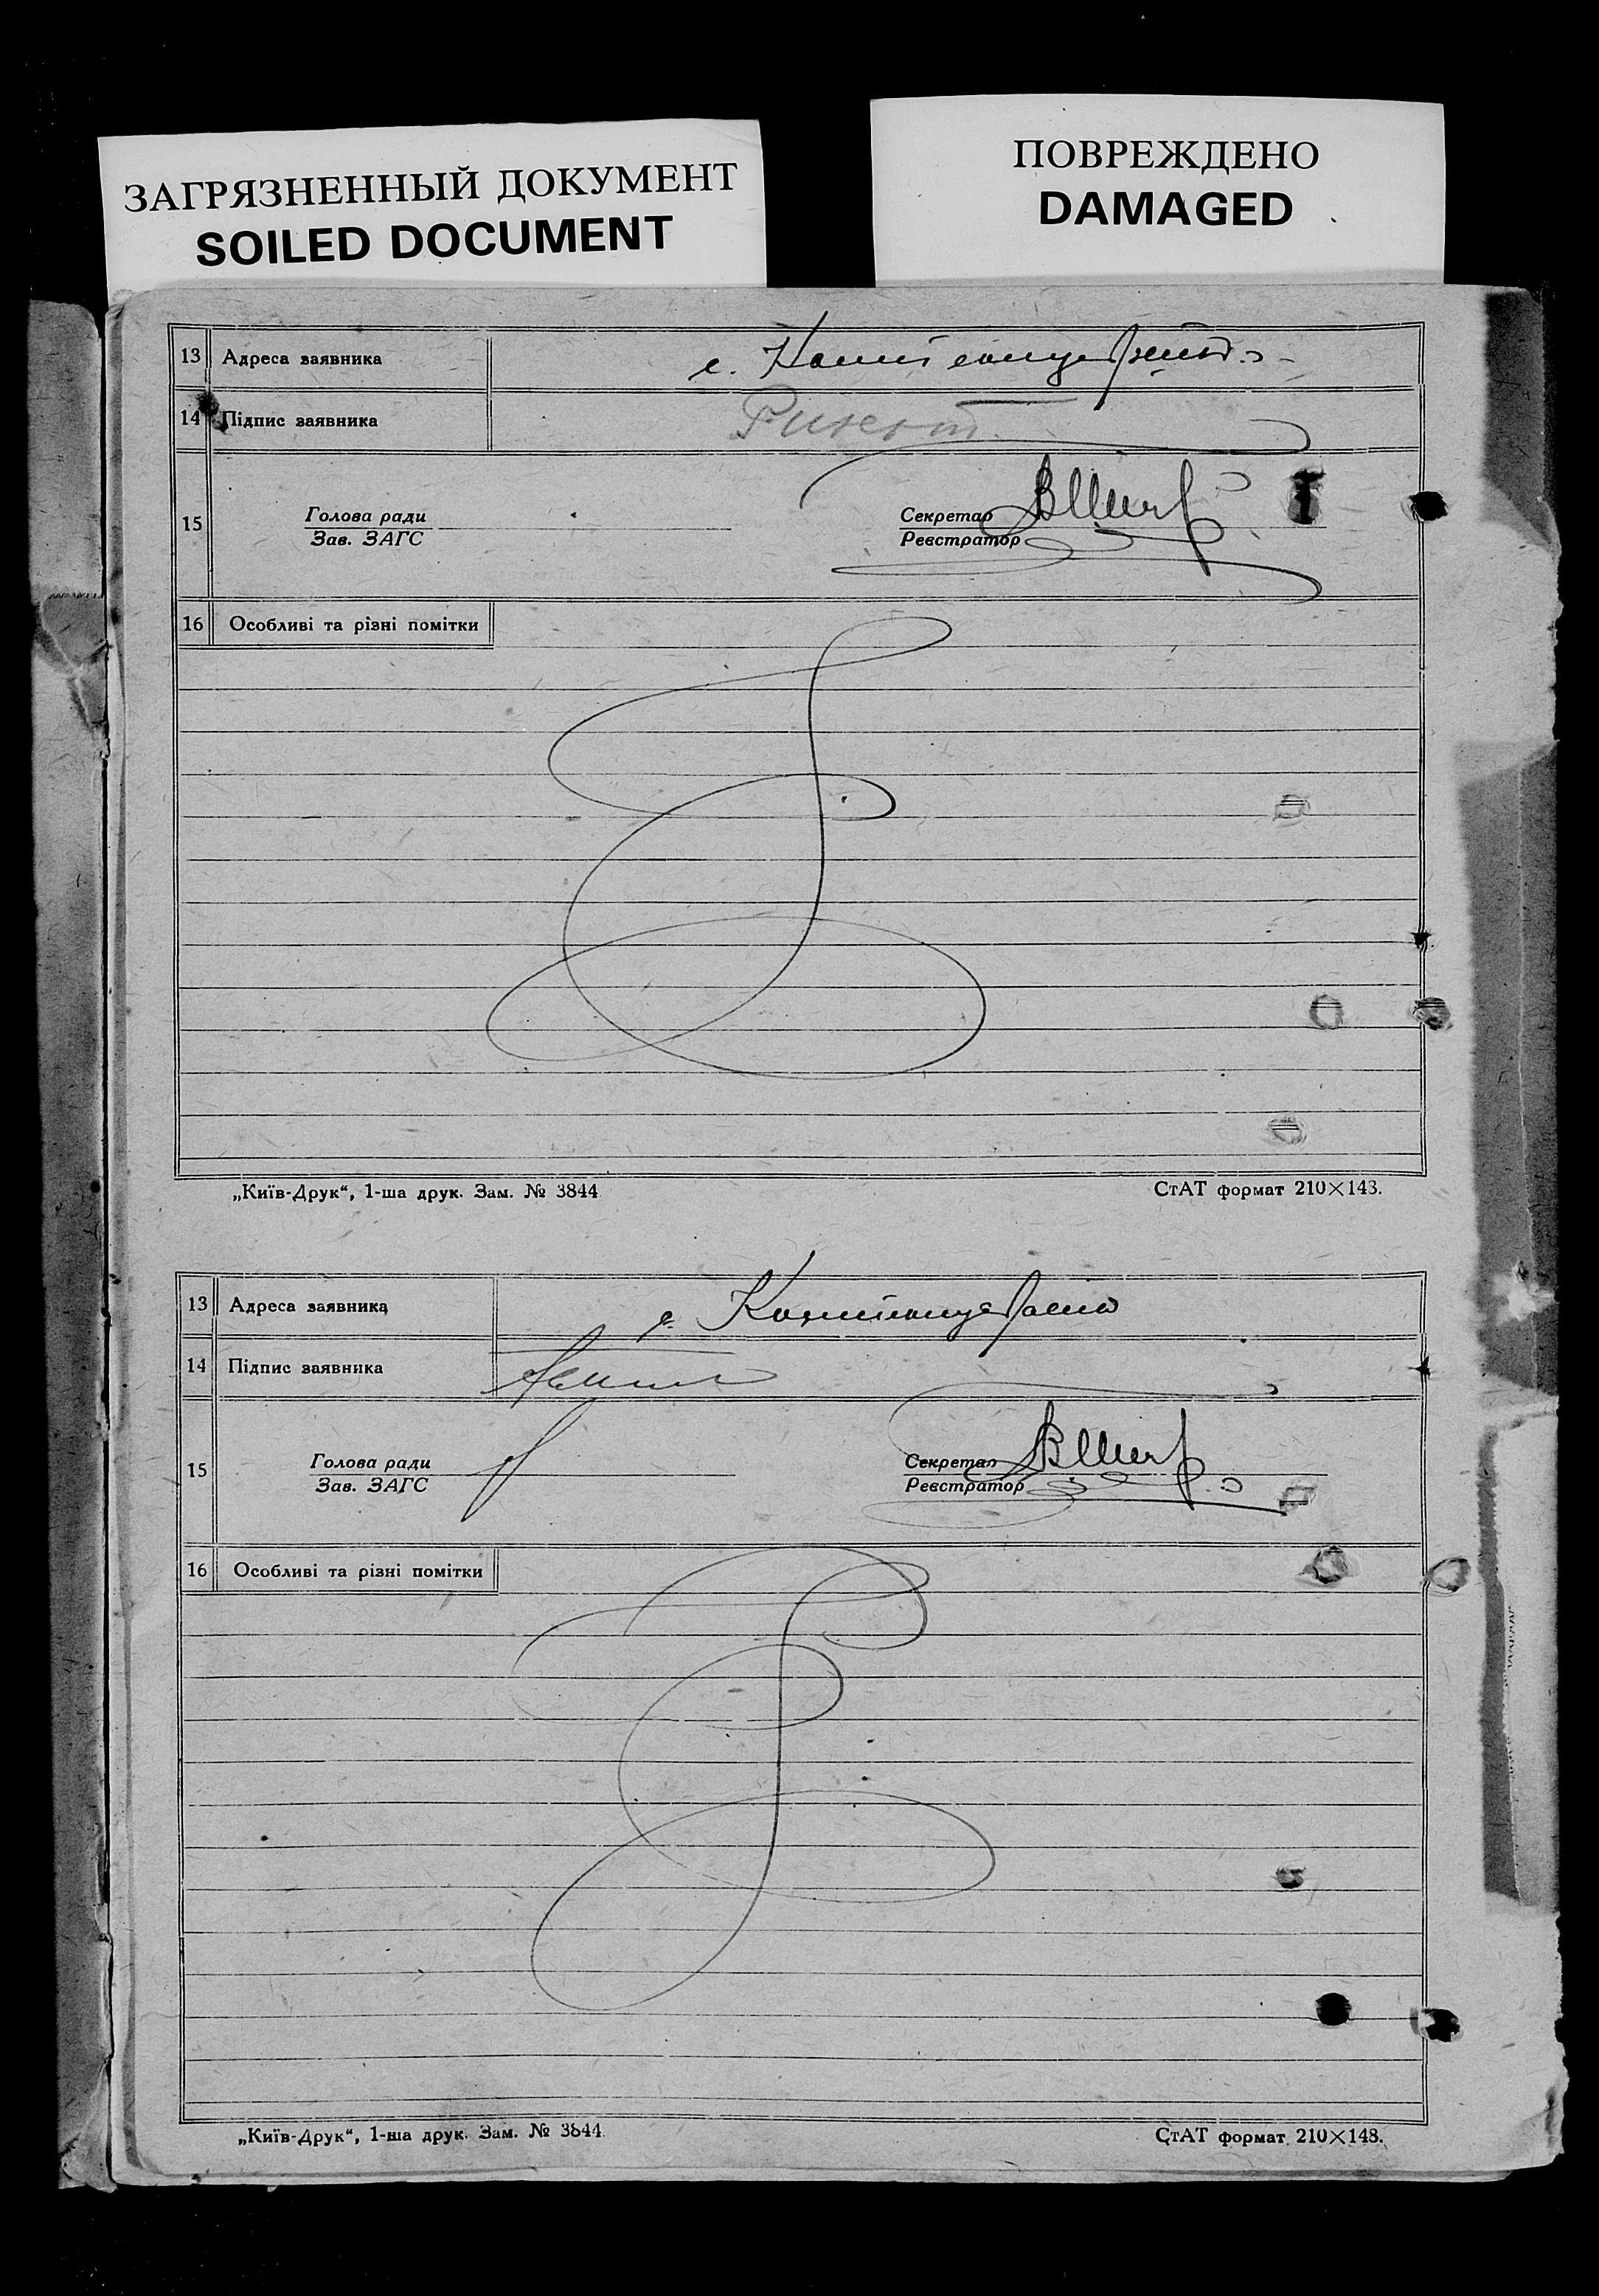 ЗАГРЯЗНЕННЫЙ ДОКУМЕНТ
SOILED DOCUMENT
ПОВРЕЖДЕНО
DAMAGED .
13 Адреса заявника с.
14 Підпис заявника
15 Голова ради
Зав. ЗАГС
Секретар
Реєстратор
16 Особливі та різні помітки
„Київ-Друк“, 1-ша друк. Зам. № 3844 СтАТ формат 210×143.
13 Адреса заявника с.
14 Підпис заявника
15 Голова ради
Зав. ЗАГС
Секретар
Реєстратор
16 Особливі та різні помітки
„Київ-Друк“, 1-ша друк. Зам. № 3844 СтАТ формат 210×148.